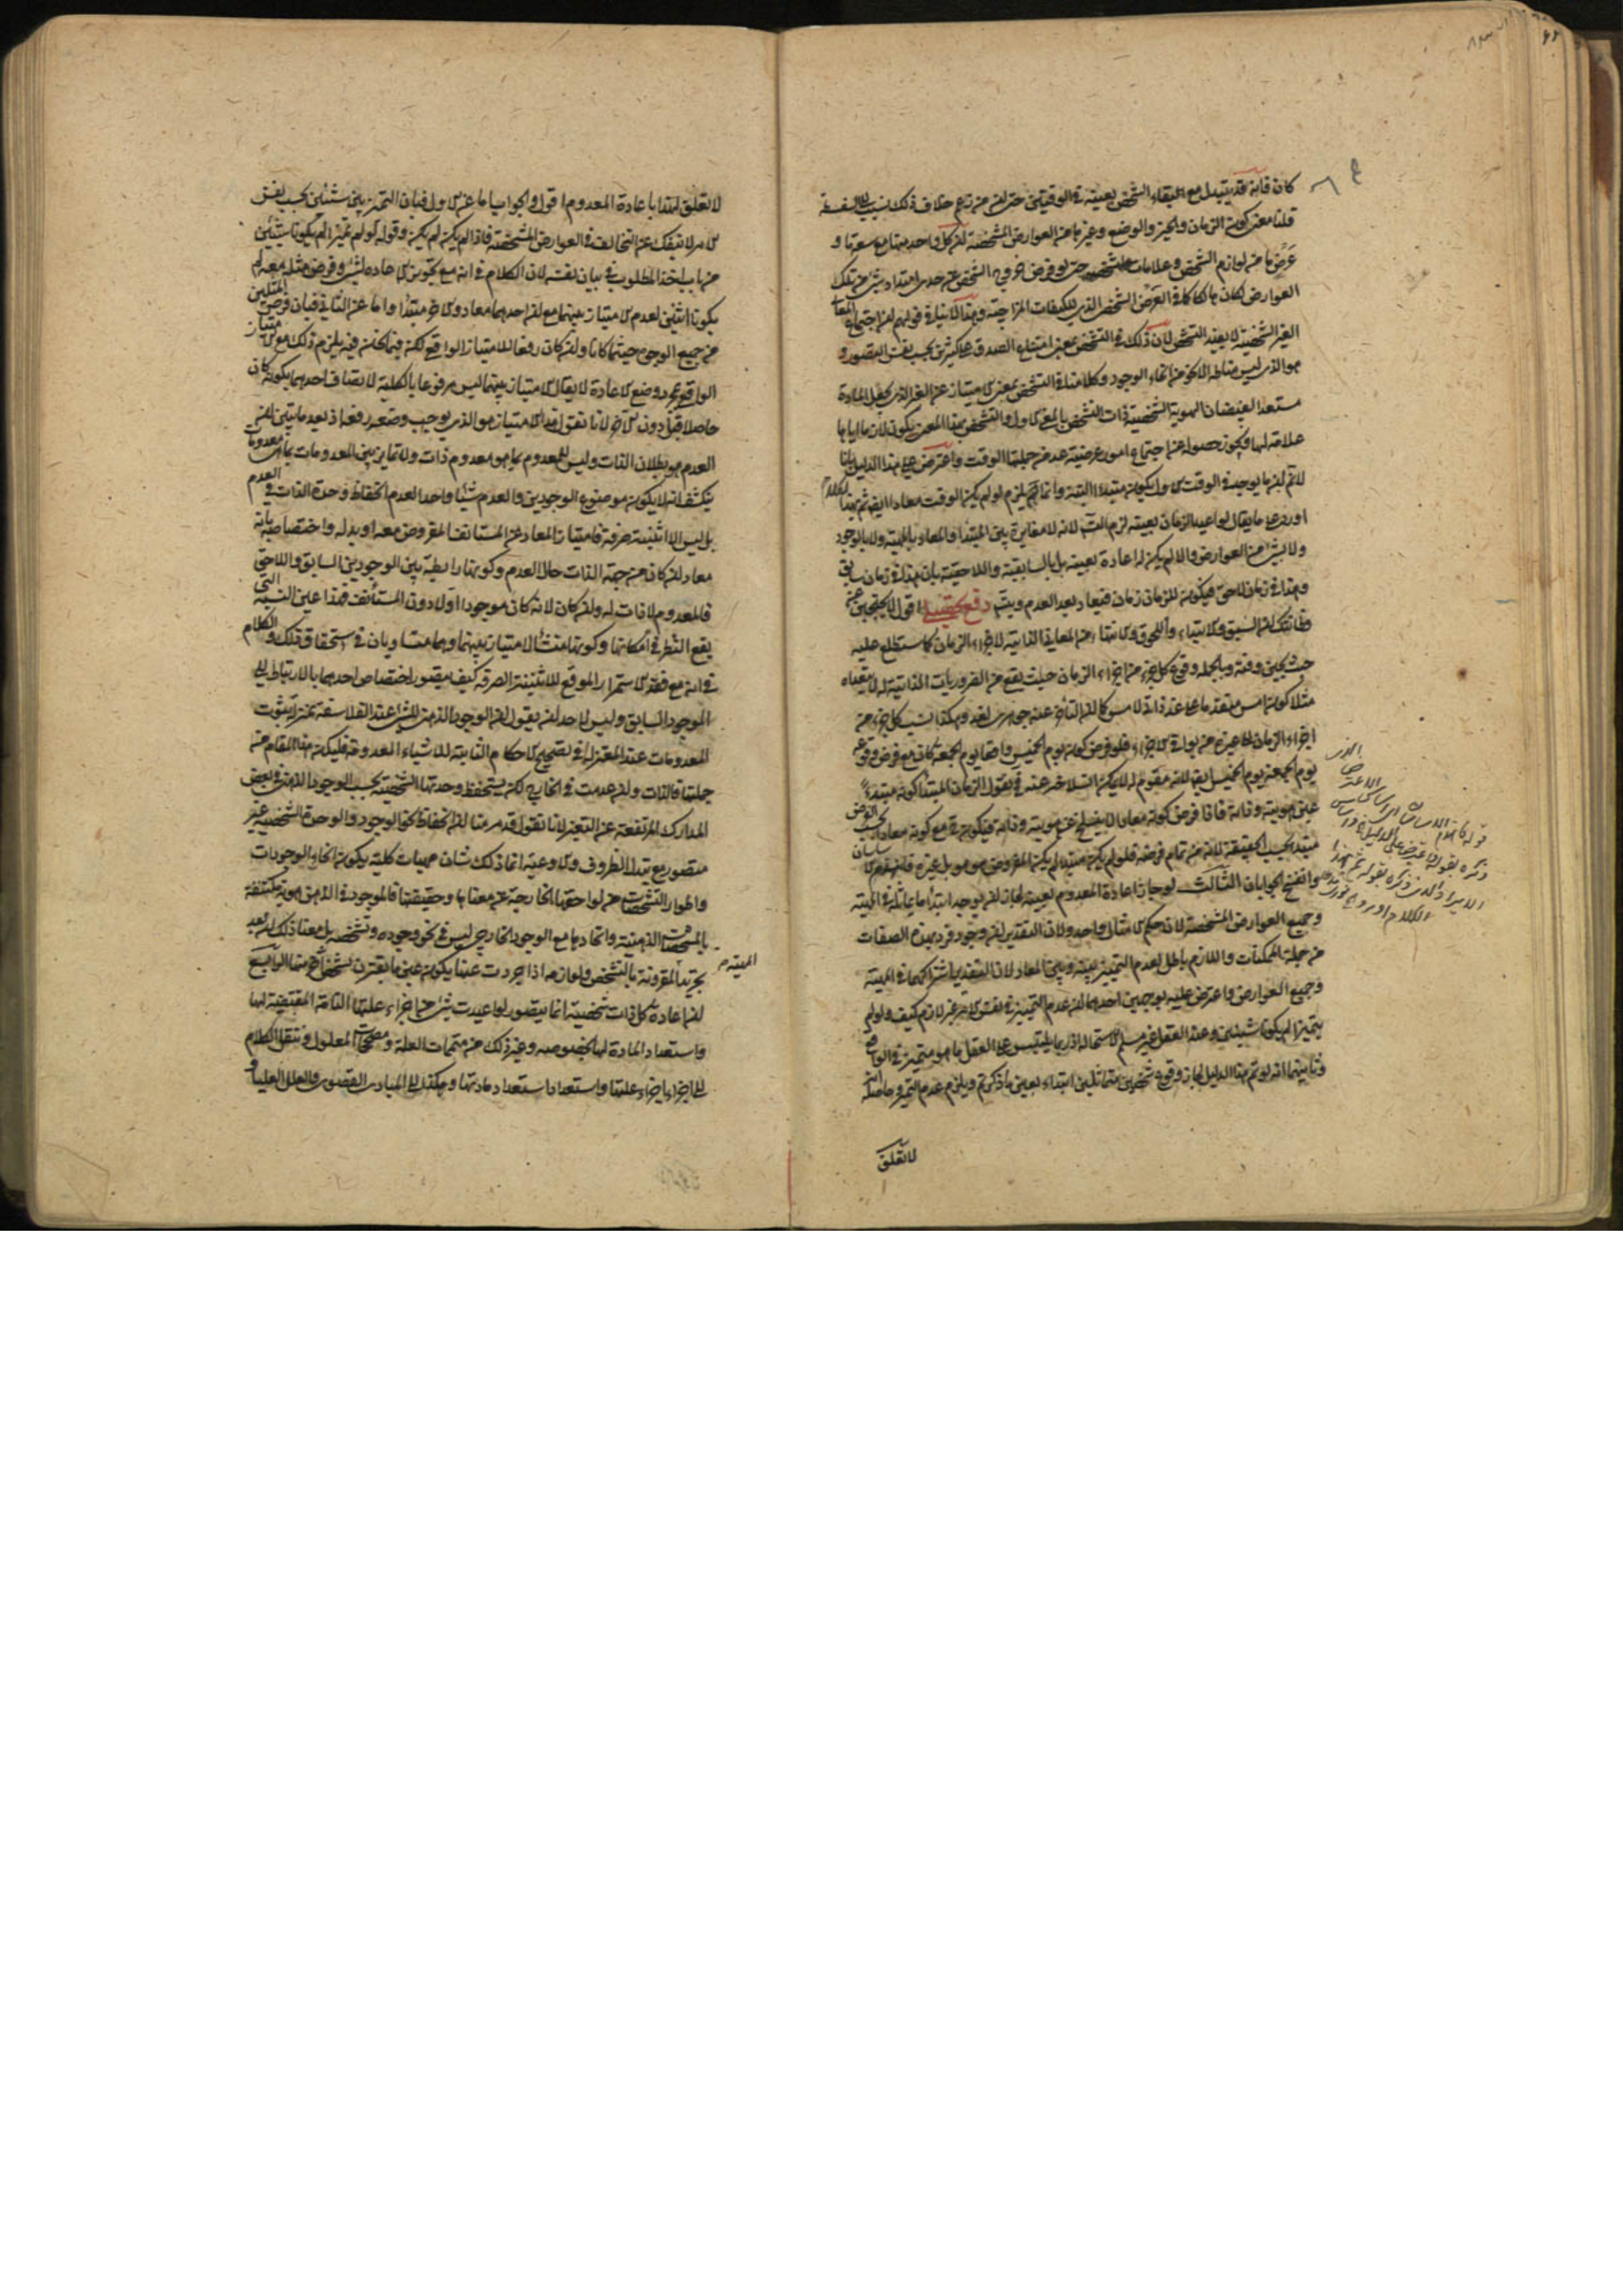 كان فانه قد يتبدل مع بقاء الشخص بعينه في الوقتين حتى ان من زعم خلاف ذلك نسب الى السفسطة
قلنا معنى كون الزمان والحيز والوضع وغيرها من العوارض المشخصة ان كل واحد منها مع سعة ما و
عرض ما من لوازم الشخص وعلامات تشخصه حتى لو فرض خروج الشخص عن حدي امتداد شيء من تلك
العوارض لكان هالكا كما في العرض الشخصي الذي للكيفيات المزاجية وهذا لا ينافي قولهم ان اجتماع المعاني
الغير الشخصية لا يفيد التشخص لان ذلك في التشخص بمعنى امتناع الصدق على كثيرين بحسب نفس التصور و
هو الذي ليس مناطه الا نحو من انحاء الوجود وكلامنا في التشخص بمعنى الامتياز عن الغير الذي يجعل المادة
مستعدة لفيضان الهوية الشخصية ذات التشخص بالمعنى الاول والتشخص بهذا المعنى يكون لازما اياها
علامة لها فيجوز حصوله عن اجتماع امور عرضية عد من جملتها الوقت واعترض على هذا الدليل بانا
لا نم ان ما يوجد في الوقت الاول يكون مبتدأ البتة وانما يلزم لو لم يكن الوقت معادا ايضا ثم بهذا الكلام
اورد على ما يقال لو اعيد الزمان بعينه لزم التس لانه لا مغايرة بين المبتدأ والمعاد بالمهية ولا بالوجود
ولا بشيء من العوارض والا لم يكن له اعادة بعينه بل بالسابقية واللاحقية بان هذا في زمان سابق
وهذا في زمان لاحق فيكون للزمان زمان فيعاد بعد العدم ويتس دفع تحصيلي اقول
فطانتك ان السبق والابتداء واللحوق والانتهاء من المعاني الذاتية لاجزاء الزمان كما ستطلع عليه
حيث يحين وقته وبالجملة وقوع كل جزء من اجزاء الزمان حيث يقع من الضروريات الذاتية له لا يتعداه
مثلا كون امس متقدما على غد ذاتي لامس كما ان التأخر عنه جوهري لغد وهكذا نسبة كل جزء من
اجزاء الزمان الى غيره من بواقي الاجزاء فلو فرض كون يوم الخميس واقعا يوم الجمعة كان مع فرض وقوعه
يوم الجمعة يوم الخميس ايضا لانه مقوم له لا يمكن انسلاخه عنه فنقول الزمان المبتدأ كونه مبتدء
عين هويته وذاته فاذا فرض كونه معادا لا ينسلخ عن هويته وذاته فيكون مع كونه معادا بحسب الفرض
مبتدأ بحسب الحقيقة لانه من تمام فرضه فلو لم يكن مبتدأ لم يكن المفروض هو هو بل غيره
وانفسخ الجوابان الثالث لو جاز اعادة المعدوم بعينه لجاز ان يوجد ابتداء ما يماثله في المهية
وجميع العوارض المشخصة لان حكم الامثال واحد ولان التقدير ان وجود فرد بهذه الصفات
من جملة الممكنات واللازم باطل لعدم التميز بينه وبين المعاد لان التقدير اشتراكهما في المهية
وجميع العوارض واعترض عليه بوجهين احدهما ان عدم التميز في نفس الامر غير لازم كيف ولو لم
يتميزا لم يكونا شيئين وعند العقل غير مسلم الاستحالة اذ ربما يلتبس على العقل ما هو متميز في الواقع
وثانيهما انه لو تم هذا الدليل لجاز وقوع شخصين متماثلين ابتداء بعين ما ذكرتم ويلزم عدم التميز وحاصله انه
لا تعلق
الذي
لا تعلق لهذا باعادة المعدوم اقول والجواب اما عن الاول فبان التميز بين شيئين بحسب نفس
الامر لا ينفك عن التخالف في العوارض المشخصة فاذا لم يكن لم يكن وقوله لو لم يتميزا لم يكونا شيئين
من باب اخذ المطلوب في بيان نفسه لان الكلام في انه مع تجويز الاعادة لشيء وفرض مثله معه لم
يكونا اثنين لعدم الامتياز بينهما مع ان احدهما معاد والاخر مبتدأ واما عن الثاني فبان فرض المثلين
من جميع الوجوه حيثما كانا وان كان رفعا للامتياز الواقعي لكن فيما نحن فيه يلزم ذلك مع الامتياز
الواقع بمجرد وضع الاعادة لا يقال الامتياز بينهما ليس مرفوعا بالكلية لاتصاف احدهما بكونه كان
حاصلا قبل دون الاخر لانا نقول هذا الامتياز هو الذي يوجب وضعه رفعه اذ بعد ما تبين ان
العدم هو بطلان الذات وليس للمعدوم بما هو معدوم ذات ولا تمايز بين المعدومات بما هي معدومات
ينكشف انه لا يكون موضوع الوجودين والعدم شيئا واحدا لعدم انحفاظ وحدة الذات في العدم
بل ليس الا اثنينية صرفة فامتياز المعاد عن المستانف المفروض معه او بدله واختصاصه بانه
معاد ان كان من جهة الذات حال العدم وكونها رابطة بين الوجودين السابق واللاحق
فالمعدوم لا ذات له وان كان لانه كان موجودا اولا دون المستأنف فهذا عين النسبة التي
يقع النظر في امكانها وكونها منشأ الامتياز بينهما وهما متساويان في استحقاق ذلك والكلام
في انه مع فقد الاستمرار الموقع للاثنينية الصرفة كيف يتصور اختصاص احدهما بالارتباط الى
الموجود السابق وليس لاحد ان يقول ان الوجود الذهني للشيء عند الفلاسفة بمنزلة ثبوت
المعدومات عند المعتزلة في تصحيح الاحكام الثابتة للاشياء المعدومة فليكن هذا المقام من
جملتها فالذات وان عدمت في الخارج لكن يستحفظ وحدتها الشخصية بحسب الوجود الذهني في بعض
المدارك المرتفعة عن التغير لانا نقول قد مر منا ان انحفاظ نحو الوجود والوحدة الشخصية غير
متصور مع تبدل الظروف والاوعية انما ذلك شان مهيات كلية يكون انحاء الوجودات
واطوار التشخصات من لواحقها الخارجة عن معناها وحقيقتها فالموجود في الذهن هوية مكتنفة
بالمشخصات الذهنية واتحادها مع الوجود الخارجي ليس في نحو وجوده وتشخصه بل معناه ذلك انه بعد
تجريد المهية المقرونة بالتشخص ولوازمه اذا جردت عنها يكون عين ما يقترن بتشخص اخر
ان اعادة كل ذات شخصية انما يتصور لو اعيدت شيء من اجزاء علتها التامة المقتضية لها
واستعداد المادة لها بخصوصه وغير ذلك من متممات العلة ومصححات المعلول وننقل الكلام
الى اجزاء اجزاء علتها واستعداد استعداد مادتها وهكذا الى المبادي القصوى والعلل العليا و